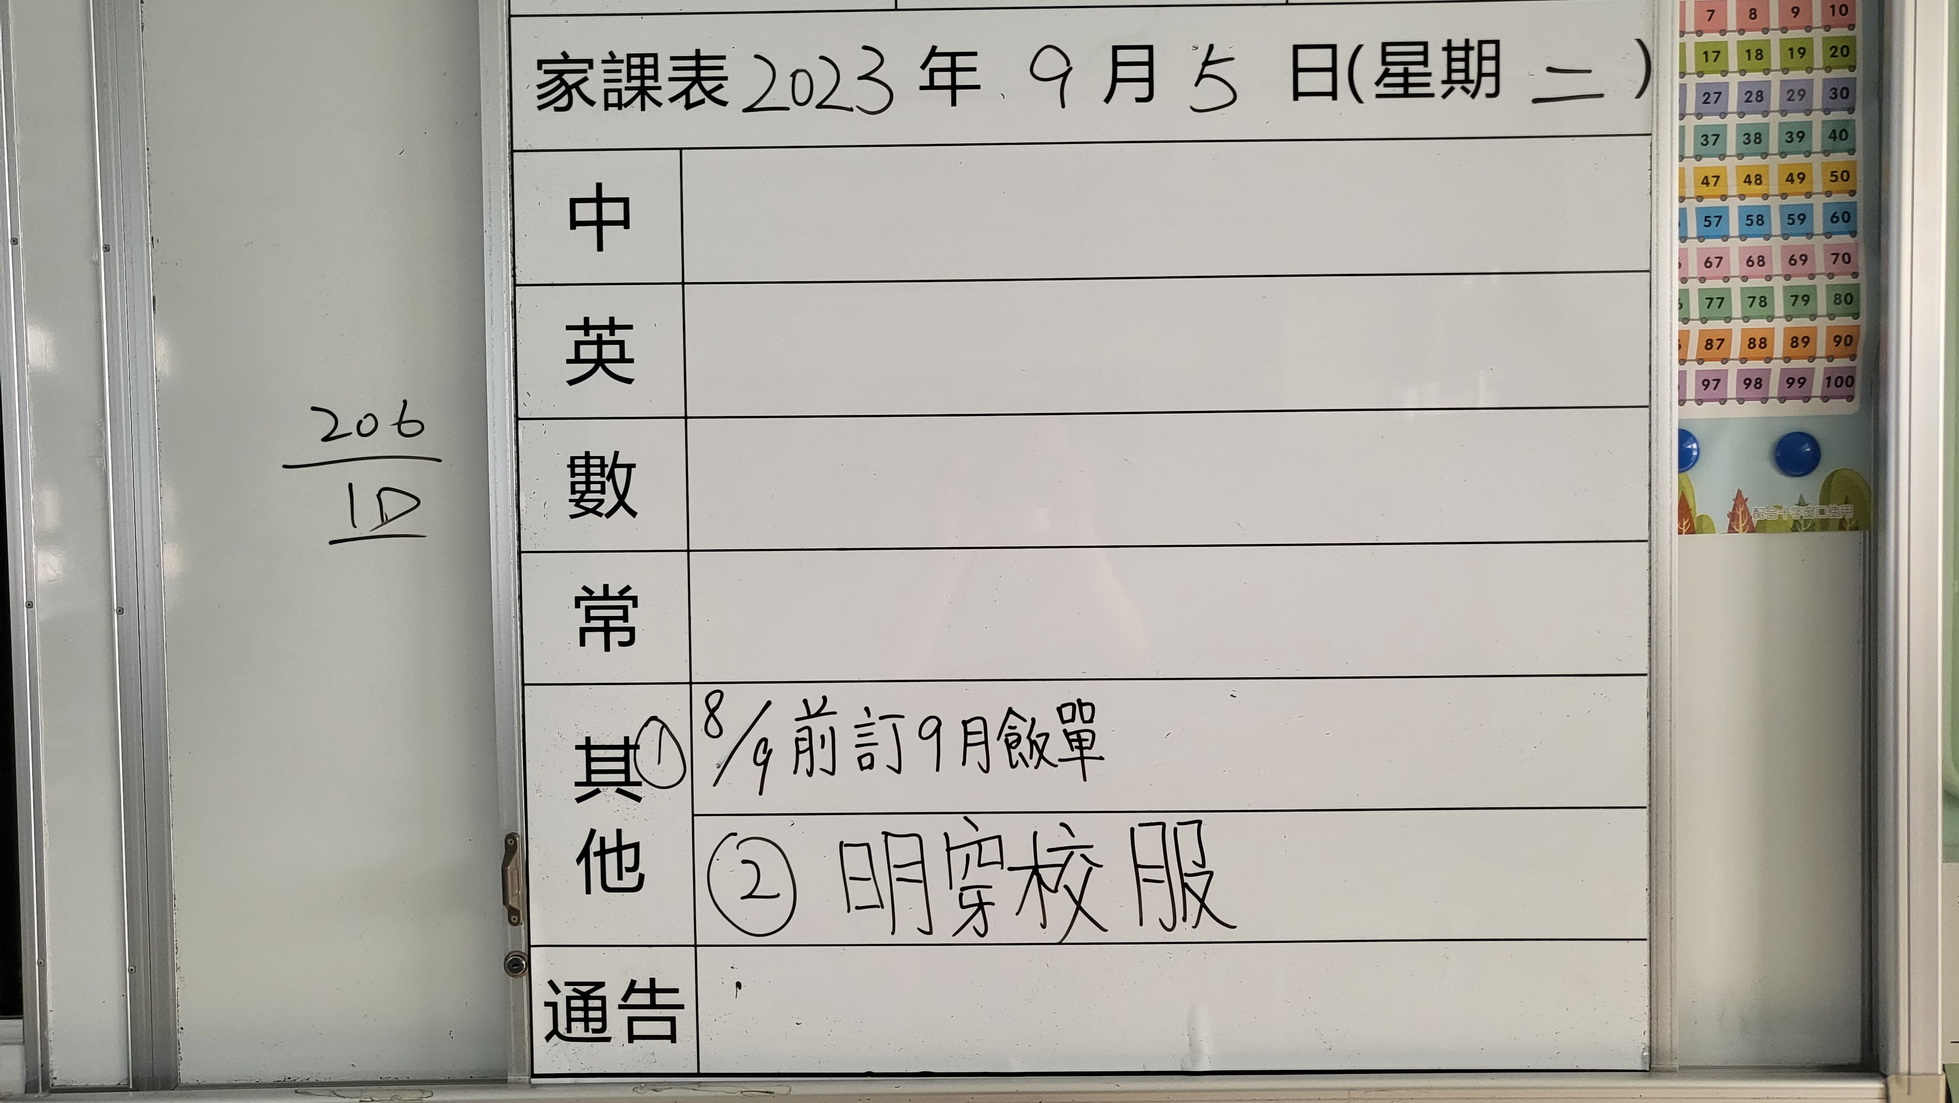 家課表 2023 年 9 月 5 日(星期 二 )
中
英
數
常
其他
① 8/9前訂9月飯單
② 明穿校服
通告
206
1D
7 8 9 10
17 18 19 20
27 28 29 30
37 38 39 40
47 48 49 50
57 58 59 60
67 68 69 70
77 78 79 80
87 88 89 90
97 98 99 100